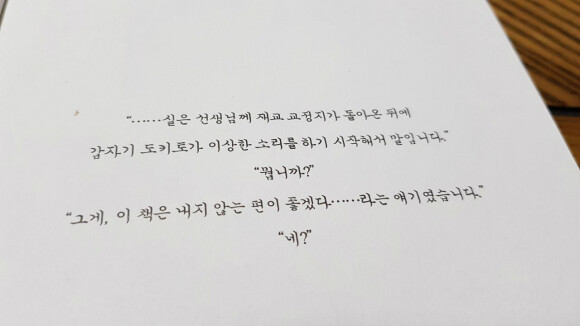 “……실은 선생님께 재교 교정지가 돌아온 뒤에
갑자기 도키로가 이상한 소리를 하기 시작해서 말입니다.”
“뭡니까?”
“그게, 이 책은 내지 않는 편이 좋겠다……라는 얘기였습니다.”
“네?”